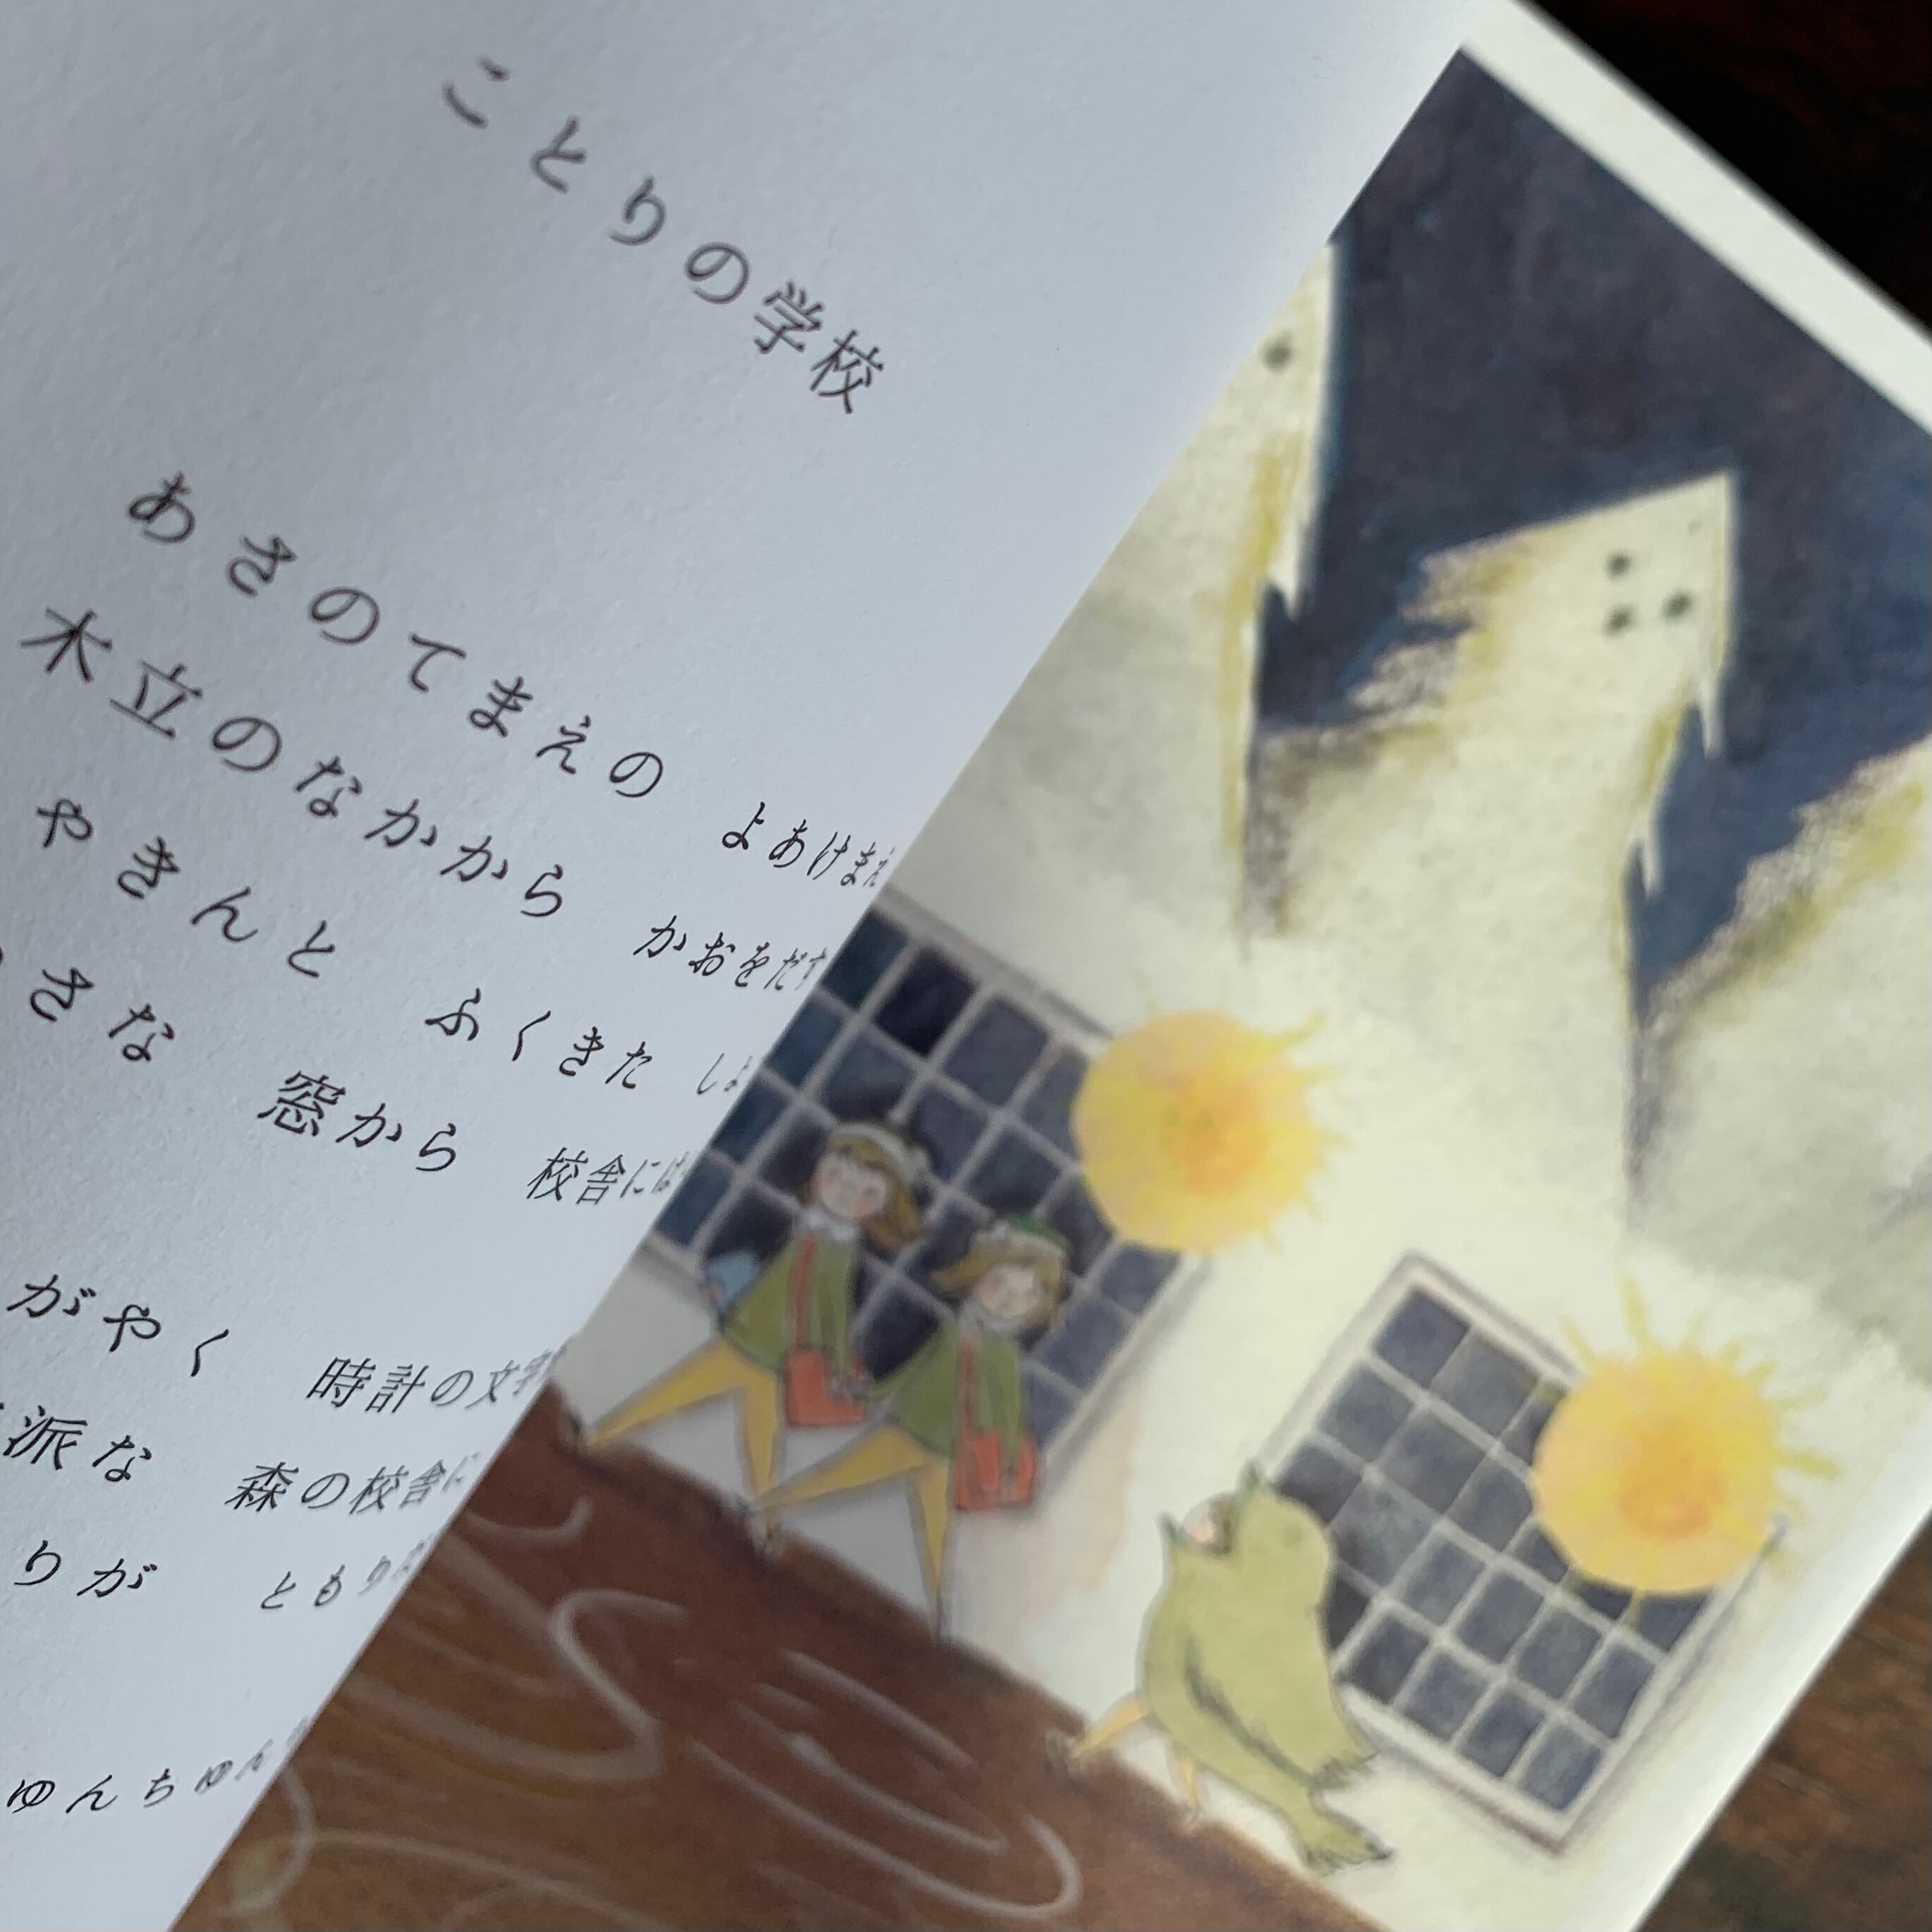 ことりの学校
あさのてまえの　よあけまえ
木立のなかから　かおをだす
やきんと　ふくきた　しょ
さな　窓から　校舎には
がやく　時計の文字
派な　森の校舎に
りが　ともりだ
ゆんちゅん